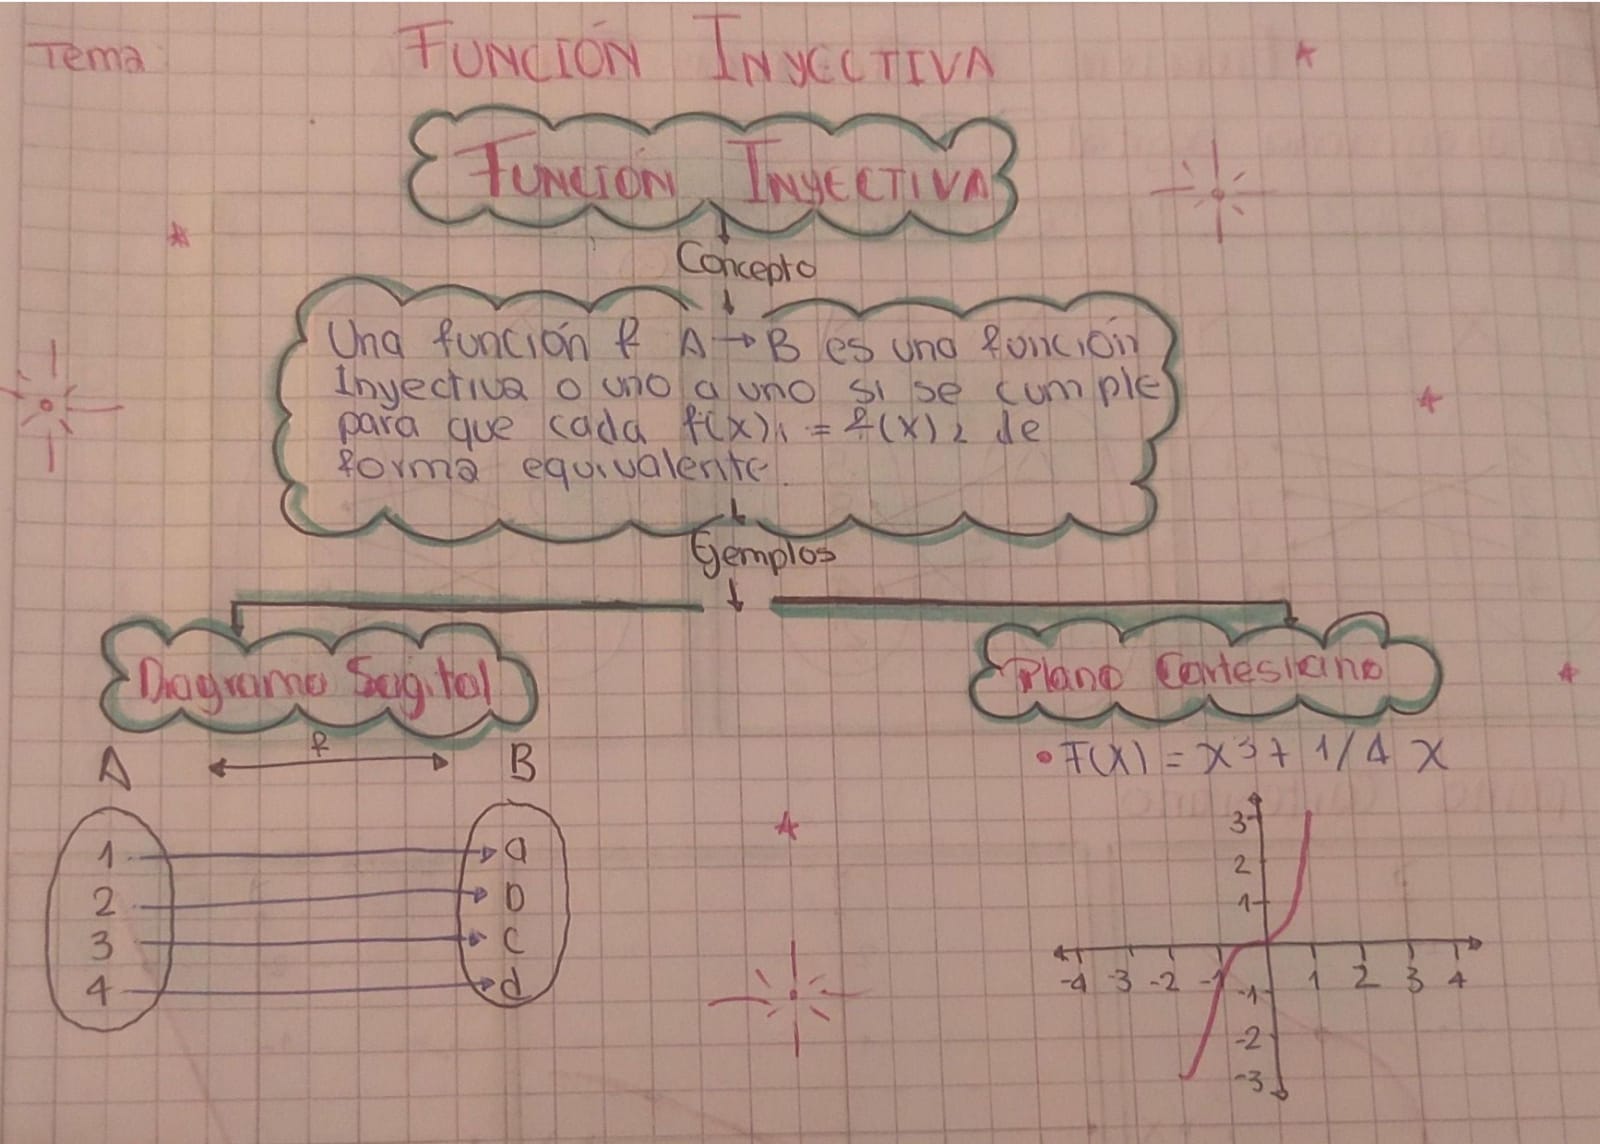 Tema
FUNCIÓN INYECTIVA
FUNCIÓN INYECTIVA
Concepto
Una función f A → B es una función
Inyectiva o uno a uno si se cumple
para que cada f(x)₁ = f(x)₂ de
forma equivalente.
Ejemplos
Diagrama Sagital
Plano Cartesiano
A f B
1 a
2 b
3 c
4 d
• F(X) = X³ + 1/4 X
3
2
1
-4 -3 -2 -1 1 2 3 4
-1
-2
-3